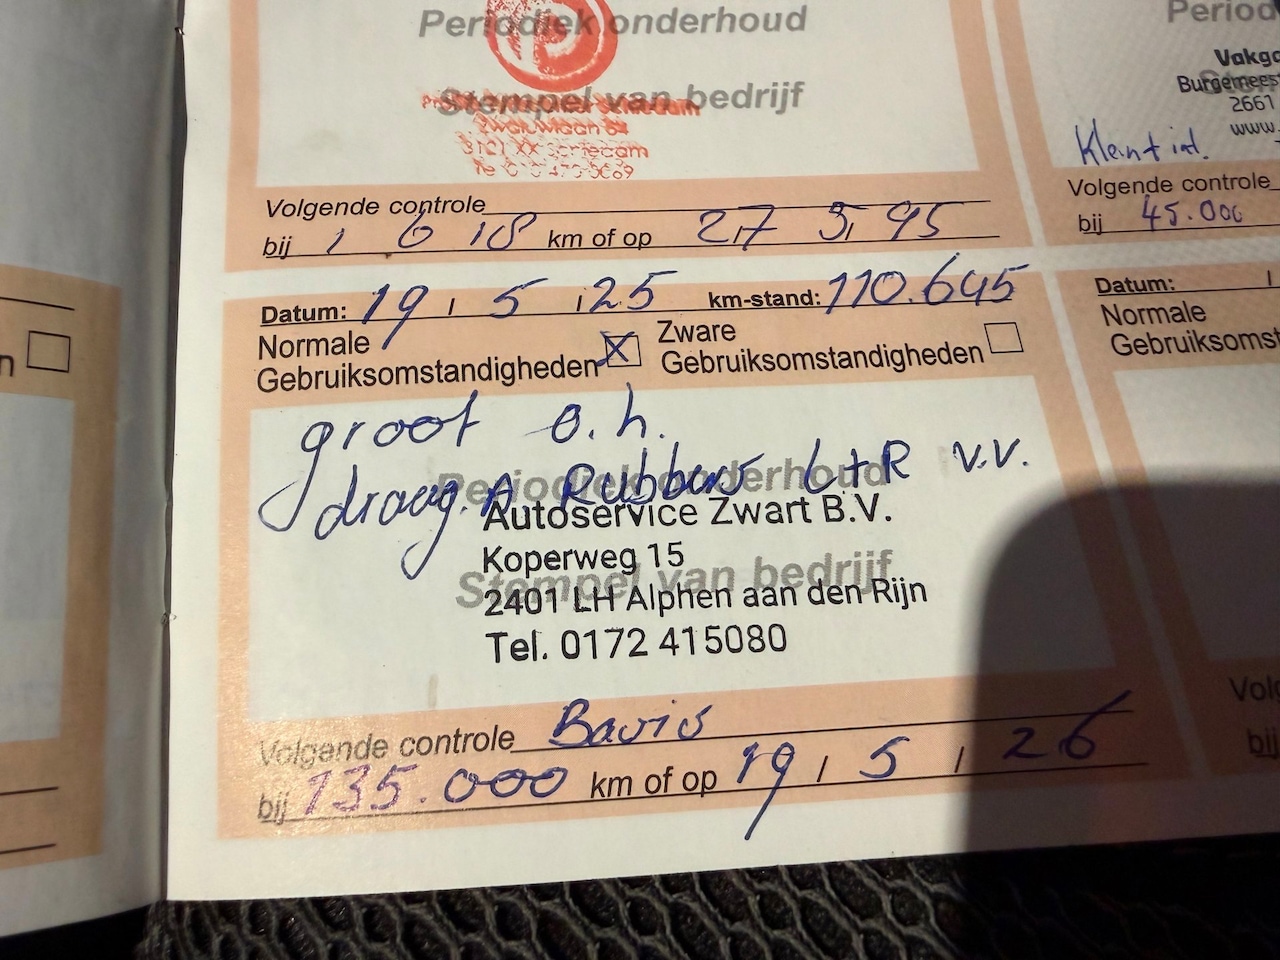 Periodiek onderhoud
Stempel van bedrijf
Volgende controle
bij 1 6 18 km of op 27 3, 95
Datum: 19 / 5 / 25 km-stand: 110.645
Normale Gebruiksomstandigheden X Zware Gebruiksomstandigheden
groot o.h.
draag. A. Rubbers L+R v.v.
Periodiek onderhoud
Autoservice Zwart B.V.
Koperweg 15
Stempel van bedrijf
2401 LH Alphen aan den Rijn
Tel. 0172 415080
Volgende controle
bij 135.000 km of op 19 / 5 / 26
Period
Vakga
Burgemees
2661
www.
Klein + int.
Volgende controle
bij 45.000
Datum: /
Normale
Gebruiksomst
Vol
bij
n